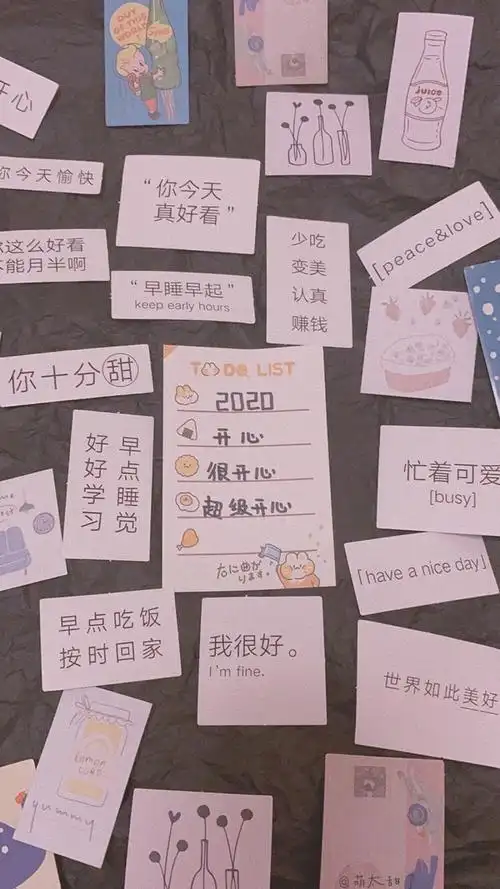 OUT
OF THIS
WORLD
开心
JUICE
你今天愉快
“你今天
真好看”
少吃
变美
认真
赚钱
[peace&love]
你这么好看
不能月半啊
“早睡早起”
keep early hours
你十分甜
TO DO LIST
2020
开心
很开心
超级开心
右に曲が
ります。
好好学习
早点睡觉
忙着可爱
[busy]
[have a nice day]
早点吃饭
按时回家
我很好。
I'm fine.
世界如此美好
LEMON
CURD
yummy
@萌大甜